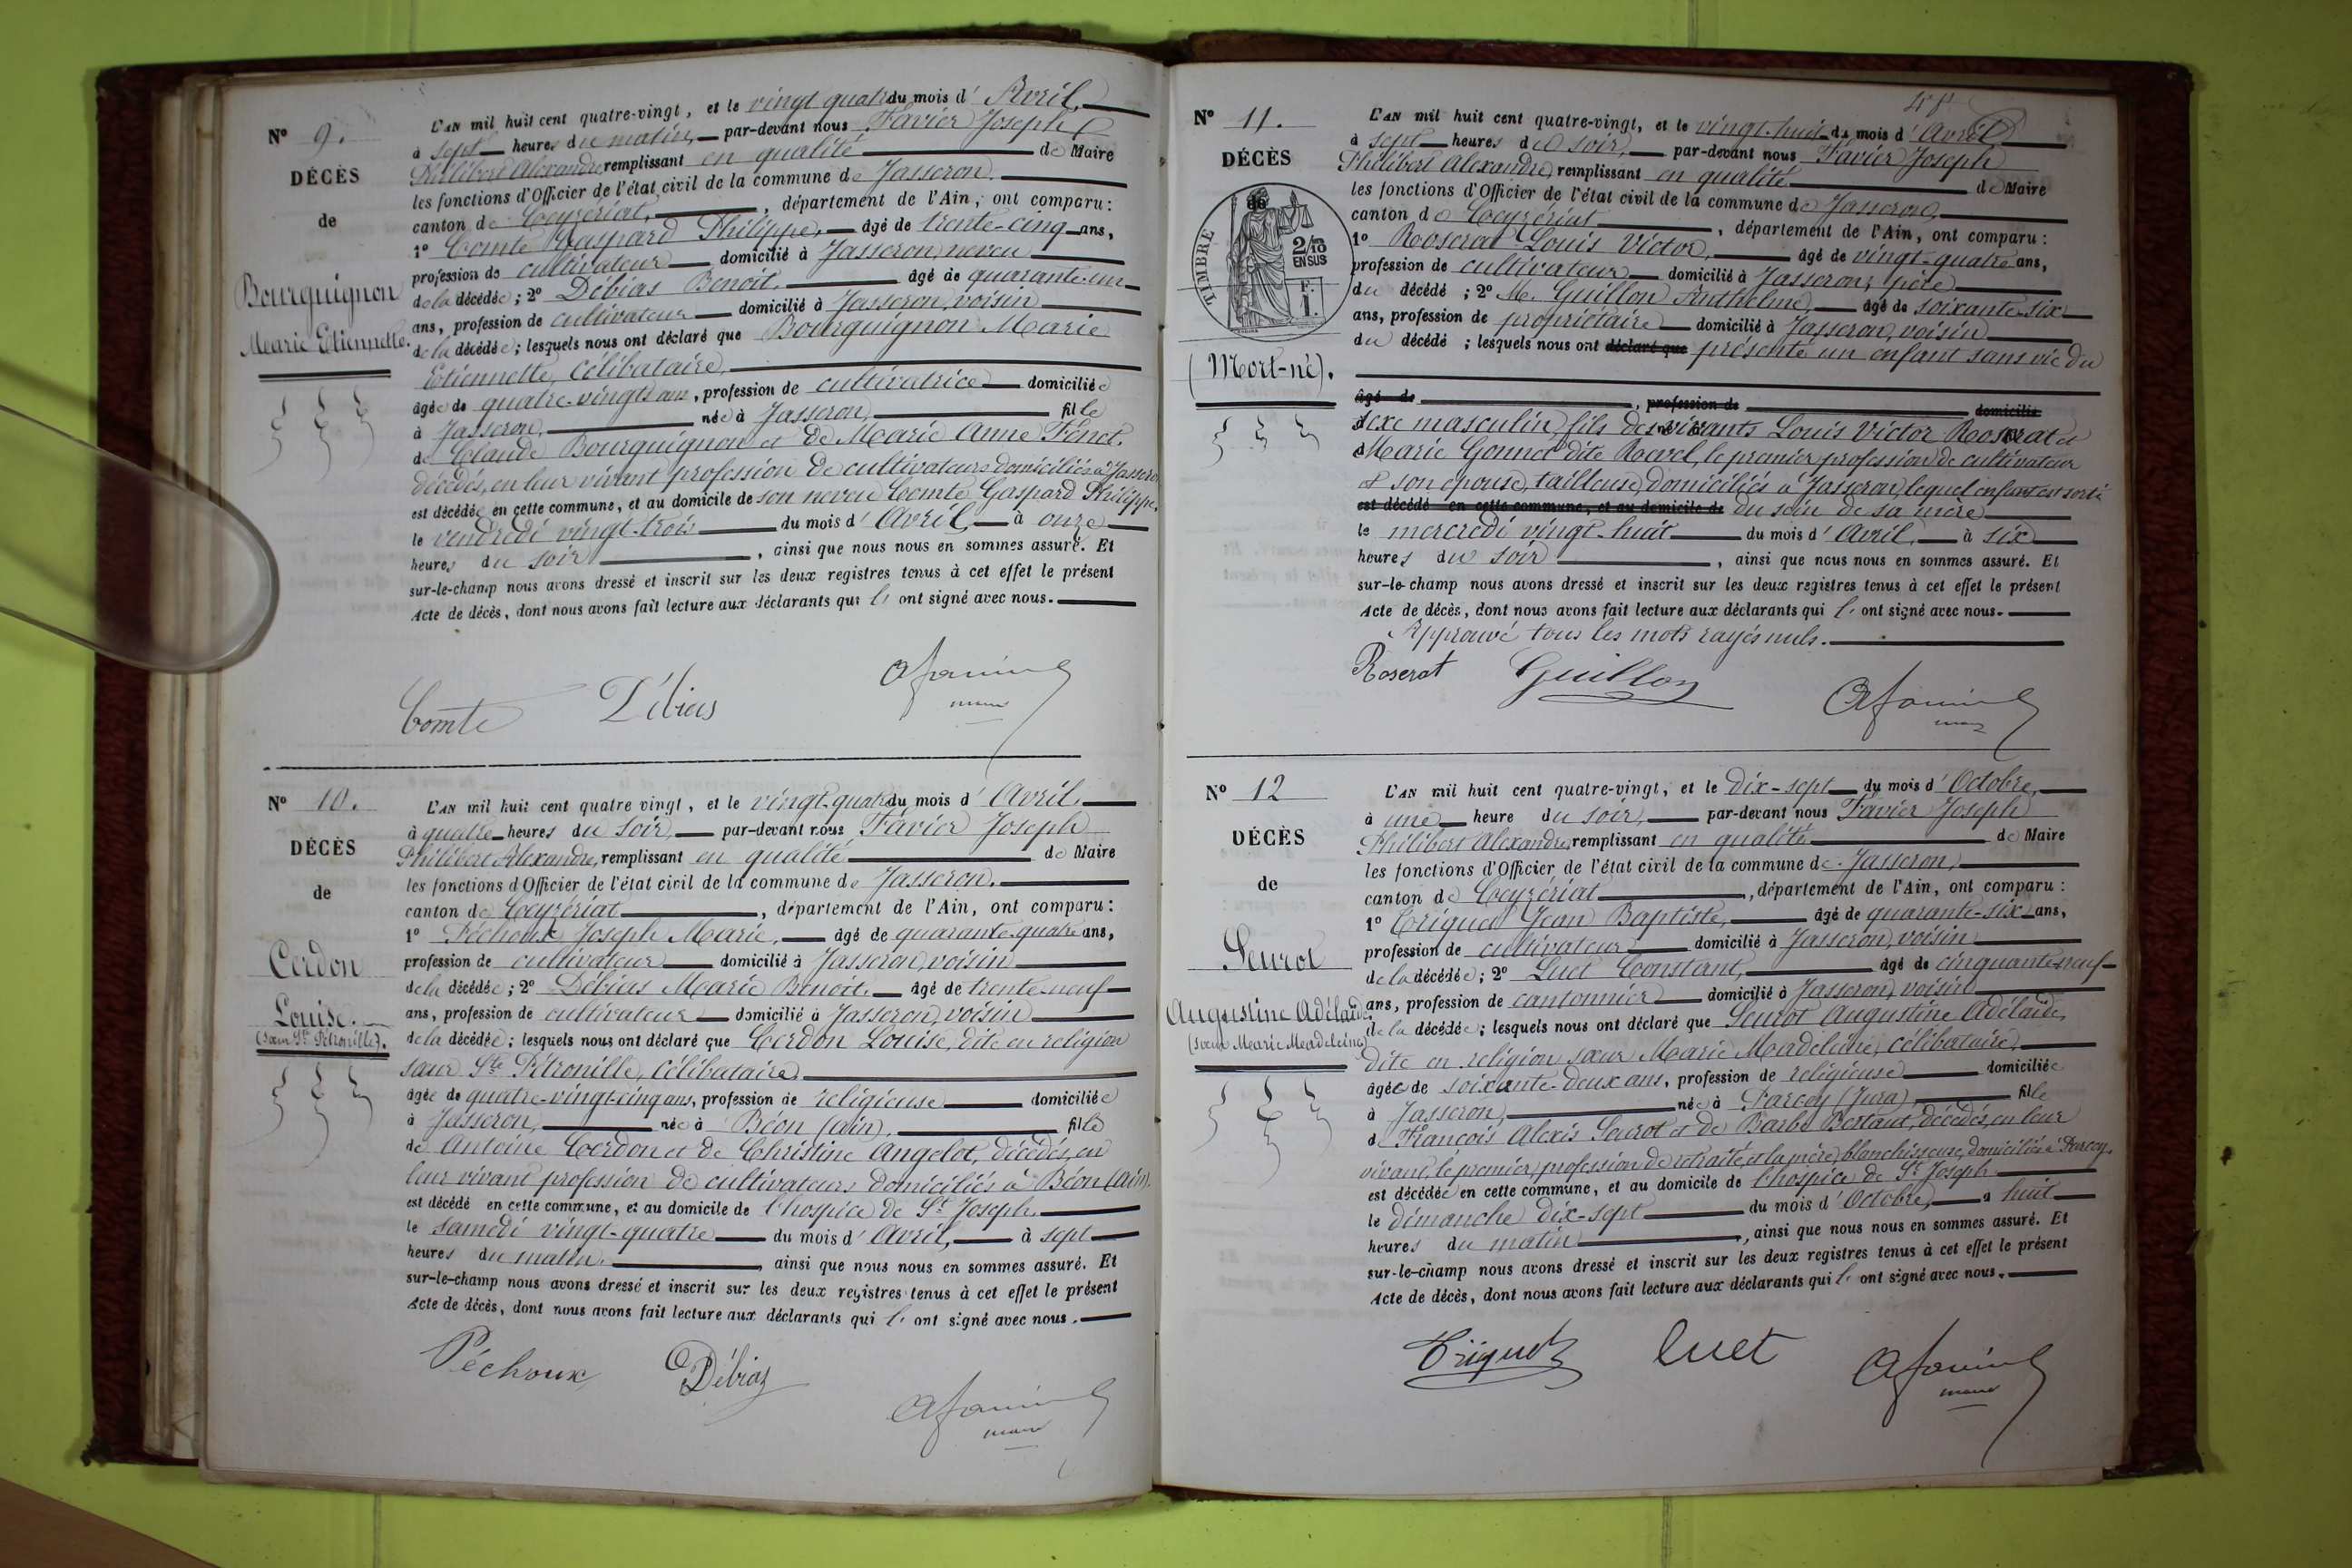 N° 9.
DÉCÈS
de
Bourguignon
Marie Etiennette.
L'AN mil huit cent quatre-vingt, et le vingt quatre du mois d'Avril,
à sept heures du matin, par-devant nous Favier Joseph
Philibert Alexandre, remplissant en qualité de Maire
les fonctions d'Officier de l'état civil de la commune de Jasseron,
canton de Ceyzériat, département de l'Ain, ont comparu :
1° Comte Gaspard Philippe, âgé de trente-cinq ans,
profession de cultivateur domicilié à Jasseron, neveu
de la décédée ; 2° Débias Benoit, âgé de quarante-un
ans, profession de cultivateur domicilié à Jasseron, voisin
de la décédée ; lesquels nous ont déclaré que Bourguignon Marie
Etiennette, célibataire,
âgée de quatre-vingts ans, profession de cultivatrice domiciliée
à Jasseron, née à Jasseron fille
de Claude Bourguignon et de Marie Anne Fénet,
décédés, en leur vivant profession de cultivateurs domiciliés à Jasseron
est décédée en cette commune, et au domicile de son neveu Comte Gaspard Philippe,
le vendredi vingt-trois du mois d'Avril, à onze
heures du soir, ainsi que nous nous en sommes assuré. Et
sur-le-champ nous avons dressé et inscrit sur les deux registres tenus à cet effet le présent
Acte de décès, dont nous avons fait lecture aux déclarants qui l'ont signé avec nous.
Comte Débias
N° 10.
DÉCÈS
de
Cerdon
Louise.
(sœur Ste Pétronille).
L'AN mil huit cent quatre vingt, et le vingt-quatre du mois d'Avril,
à quatre heures du soir, par-devant nous Favier Joseph
Philibert Alexandre, remplissant en qualité de Maire
les fonctions d'Officier de l'état civil de la commune de Jasseron,
canton de Ceyzériat, département de l'Ain, ont comparu :
1° Péchoux Joseph Marie, âgé de quarante-quatre ans,
profession de cultivateur domicilié à Jasseron, voisin
de la décédée ; 2° Débias Marie Benoit, âgé de trente-neuf
ans, profession de cultivateur domicilié à Jasseron, voisin
de la décédée ; lesquels nous ont déclaré que Cerdon Louise, dite en religion
sœur Ste Pétronille, célibataire,
âgée de quatre-vingt-cinq ans, profession de religieuse domiciliée
à Jasseron, née à Béon (Ain), fille
de Antoine Cerdon et de Christine Angelot, décédés, en
leur vivant profession de cultivateurs domiciliés à Béon (Ain),
est décédé en cette commune, et au domicile de l'hospice de St Joseph,
le samedi vingt-quatre du mois d'Avril, à sept
heures du matin, ainsi que nous nous en sommes assuré. Et
sur-le-champ nous avons dressé et inscrit sur les deux registres tenus à cet effet le présent
Acte de décès, dont nous avons fait lecture aux déclarants qui l'ont signé avec nous.
Péchoux Débiaz
N° 11.
DÉCÈS
de
TIMBRE
2/10
EN SUS
F.
1.
(Mort-né).
48
L'AN mil huit cent quatre-vingt, et le vingt-huit du mois d'Avril
à sept heures du soir, par-devant nous Favier Joseph
Philibert Alexandre, remplissant en qualité de Maire
les fonctions d'Officier de l'état civil de la commune de Jasseron,
canton de Ceyzériat, département de l'Ain, ont comparu :
1° Roserat Louis Victor, âgé de vingt-quatre ans,
profession de cultivateur domicilié à Jasseron, père
du décédé ; 2° M. Guillon Anthelme, âgé de soixante-six
ans, profession de propriétaire domicilié à Jasseron, voisin
du décédé ; lesquels nous ont déclaré que présenté un enfant sans vie du
âgé de , profession de domicilié
sexe masculin, fils des vivants Louis Victor Roserat et
Marie Gonnet dite Revel, le premier profession de cultivateur
& son épouse, tailleuse, domiciliés à Jasseron, lequel enfant est sorti
est décédé en cette commune, et au domicile de du sein de sa mère
le mercredi vingt-huit du mois d'Avril, à six
heures du soir, ainsi que nous nous en sommes assuré. Et
sur-le-champ nous avons dressé et inscrit sur les deux registres tenus à cet effet le présent
Acte de décès, dont nous avons fait lecture aux déclarants qui l'ont signé avec nous.
Approuvé tous les mots rayés nuls.
Roserat Guillon
N° 12
DÉCÈS
de
Seurot
Augustine Adélaïde,
(sœur Marie Madeleine)
L'AN mil huit cent quatre-vingt, et le dix-sept du mois d'Octobre,
à une heure du soir, par-devant nous Favier Joseph
Philibert Alexandre, remplissant en qualité de Maire
les fonctions d'Officier de l'état civil de la commune de Jasseron,
canton de Ceyzériat, département de l'Ain, ont comparu :
1° Criquet Jean Baptiste, âgé de quarante-six ans,
profession de cultivateur domicilié à Jasseron, voisin
de la décédée ; 2° Luet Constant, âgé de cinquante-neuf
ans, profession de cantonnier domicilié à Jasseron, voisin
de la décédée ; lesquels nous ont déclaré que Seurot Augustine Adélaïde,
dite en religion sœur Marie Madeleine, célibataire,
âgée de soixante-deux ans, profession de religieuse domiciliée
à Jasseron, née à Parcey (Jura), fille
d François Alexis Seurot et de Barbe Bertaut, décédés, en leur
vivant, le premier profession de retraité, et la mère, blanchisseuse, domiciliés à Parcey,
est décédée en cette commune, et au domicile de l'hospice de St Joseph
le dimanche dix-sept du mois d'Octobre, à huit
heures du matin, ainsi que nous nous en sommes assuré. Et
sur-le-champ nous avons dressé et inscrit sur les deux registres tenus à cet effet le présent
Acte de décès, dont nous avons fait lecture aux déclarants qui l'ont signé avec nous.
Criquet Luet